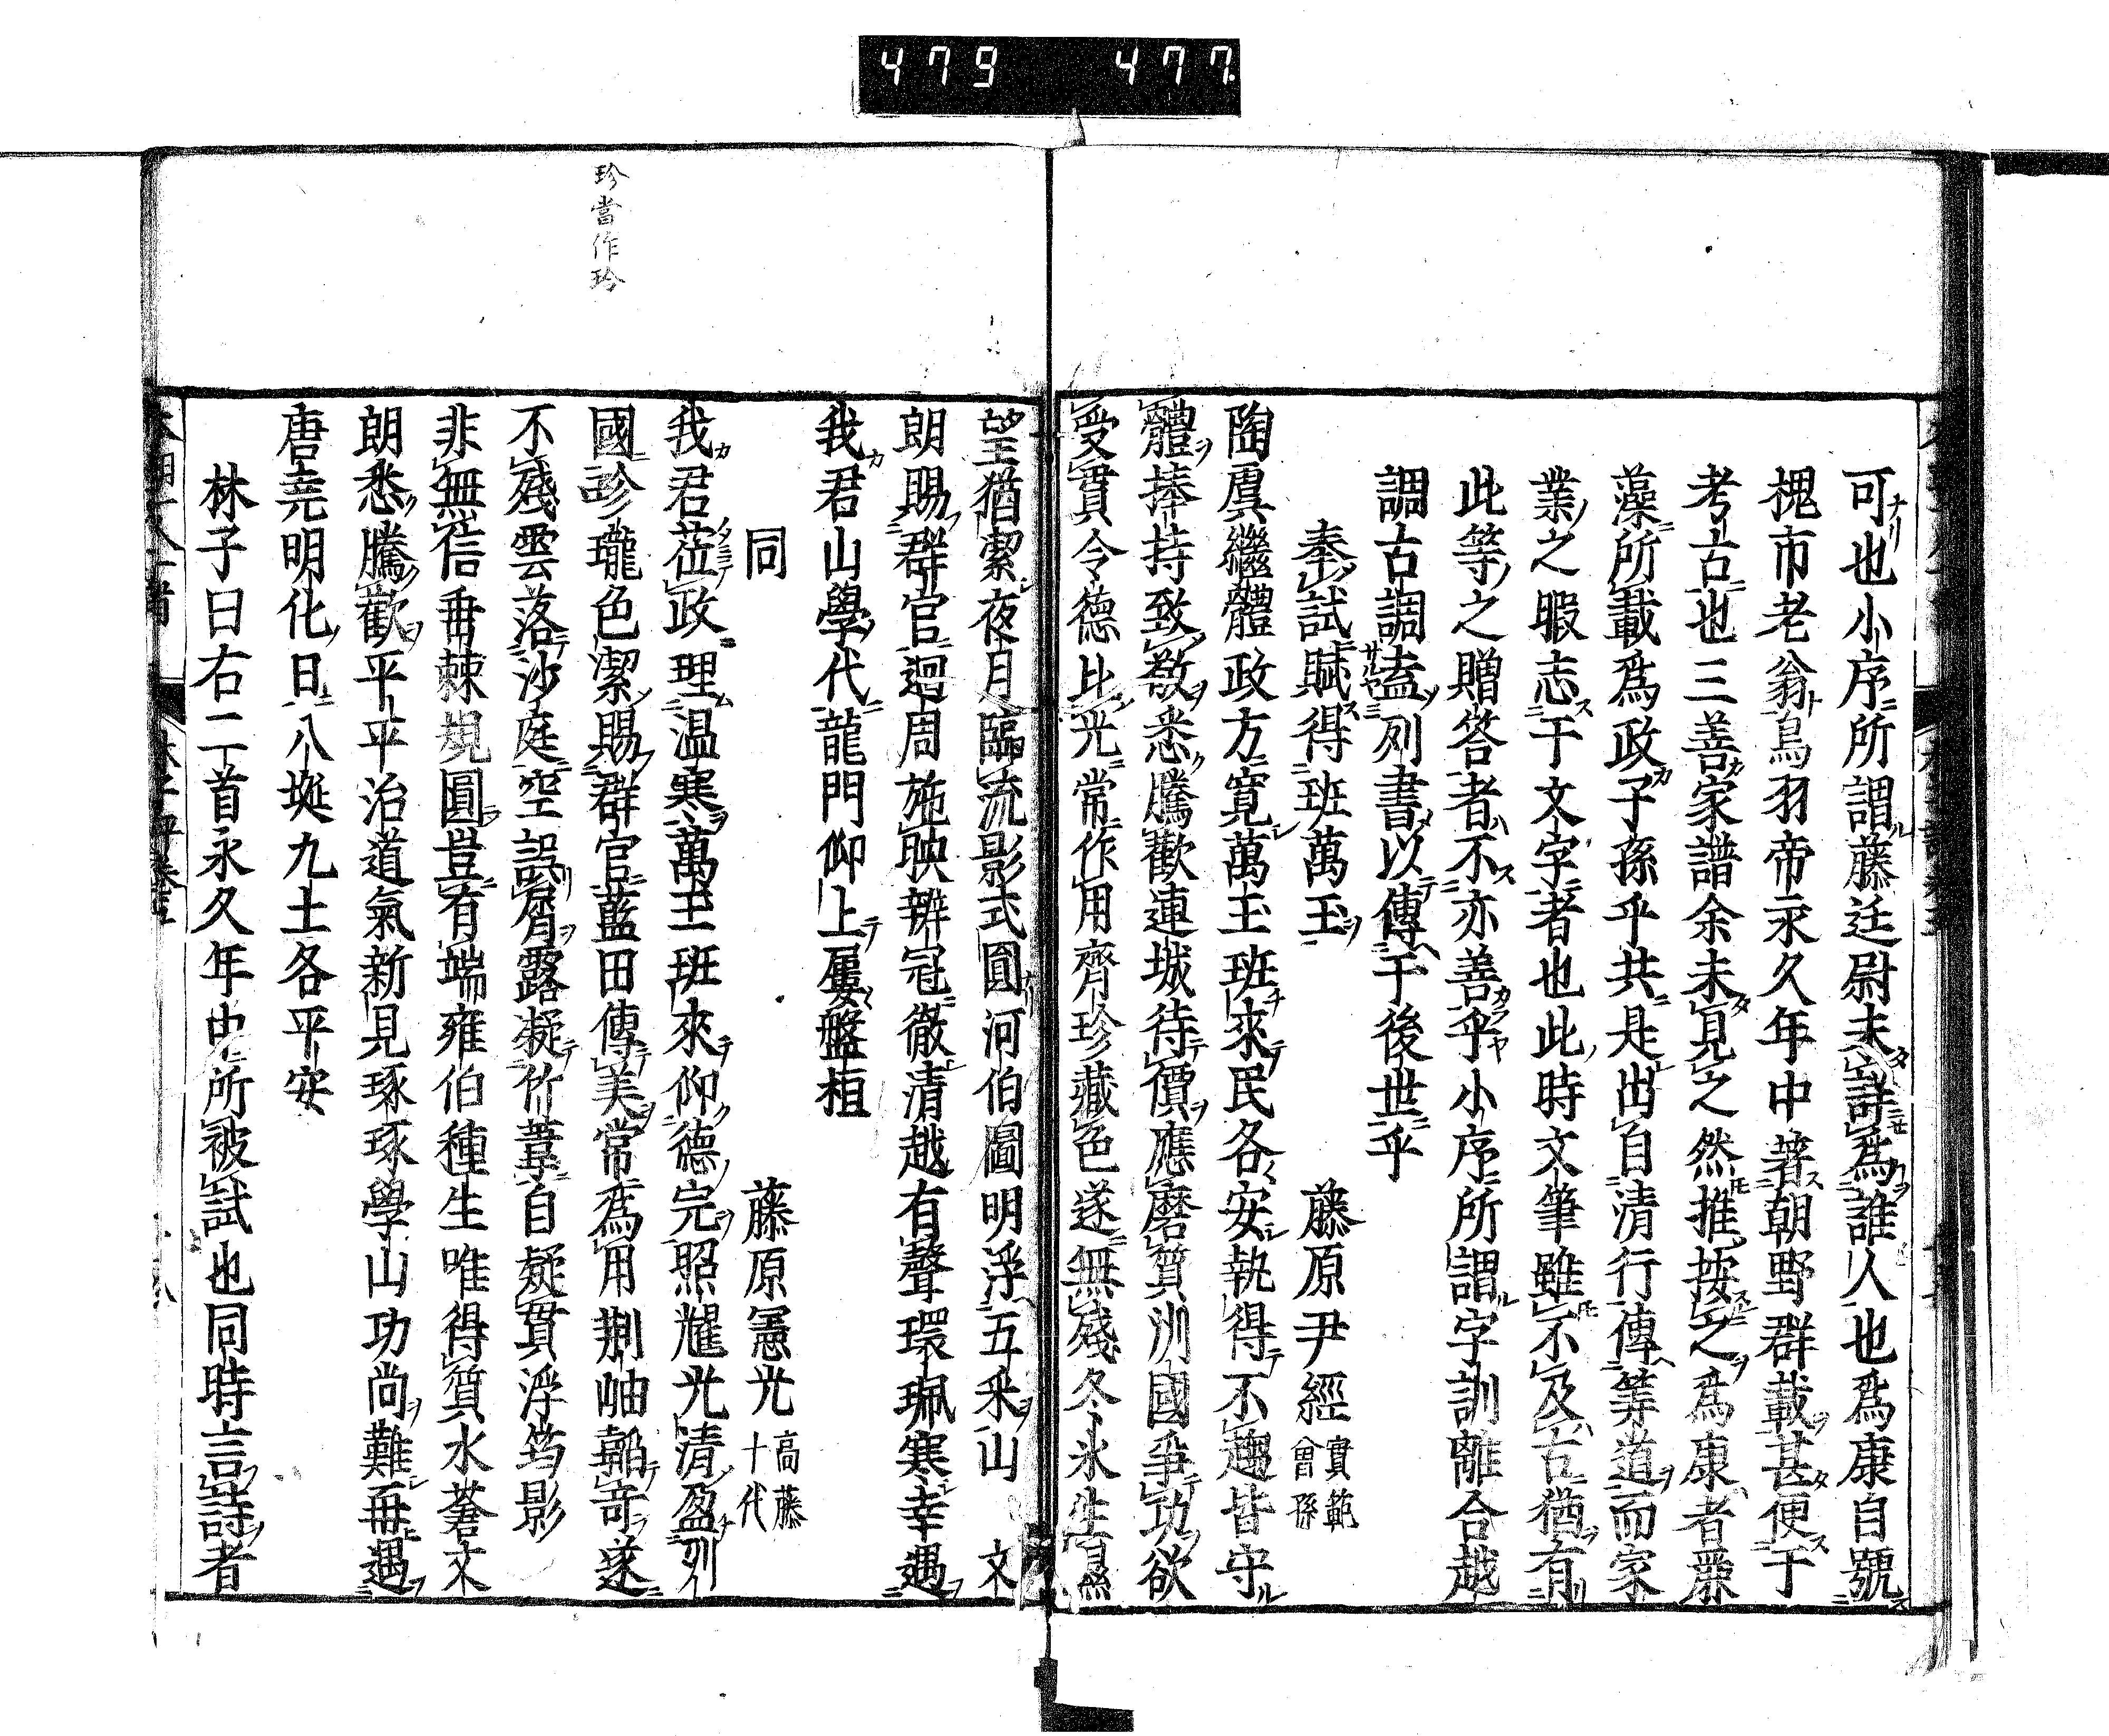 479 477
可也小序所謂藤廷尉未詳爲誰人也爲康自號
槐市老翁鳥羽帝永久年中著朝野群載甚便于
考古也三善家譜余未見之然推按之爲康者蓋
藻所載爲政子孫乎共是出自清行傳筭道而家
業之暇志于文字者也此時文筆雖不及古猶有
此等之贈答者不亦善乎小序所謂字訓離合越
調古調盍列書以傳于後世乎
奉試賦得班萬玉 藤原尹經 實範曾孫
陶虞繼體政方寬萬玉班來民各安執得不趨皆守
體捧持致敬悉騰歡連城待價應磨質洲國爭功欲
受貫令德比光常作用齊珍藏色遂無殘冬氷生濕
望猶潔夜月臨流影式圓河伯圖明浮五采山 文
朗賜群官迴周施映辨冠徹清越有聲環珮寒幸遇
我君山學代龍門仰上屢盤桓
同 藤原憲光 高藤十代
我君莅政理温寒萬玉班來仰德完照耀光清盈列
國珍瓏色潔賜群官藍田傳美常爲用荆岫韜奇遂
不殘雲落沙庭空誤屑露凝竹葦自疑貫浮筠影
非無信垂棘規圓豈有端雍伯種生唯得質水蒼文
朗悉騰歡平平治道氣新見琢琢學山功尚難再遇
唐堯明化日八埏九土各平安
林子曰右二首永久年中所被試也同時言詩者
珍當作玲